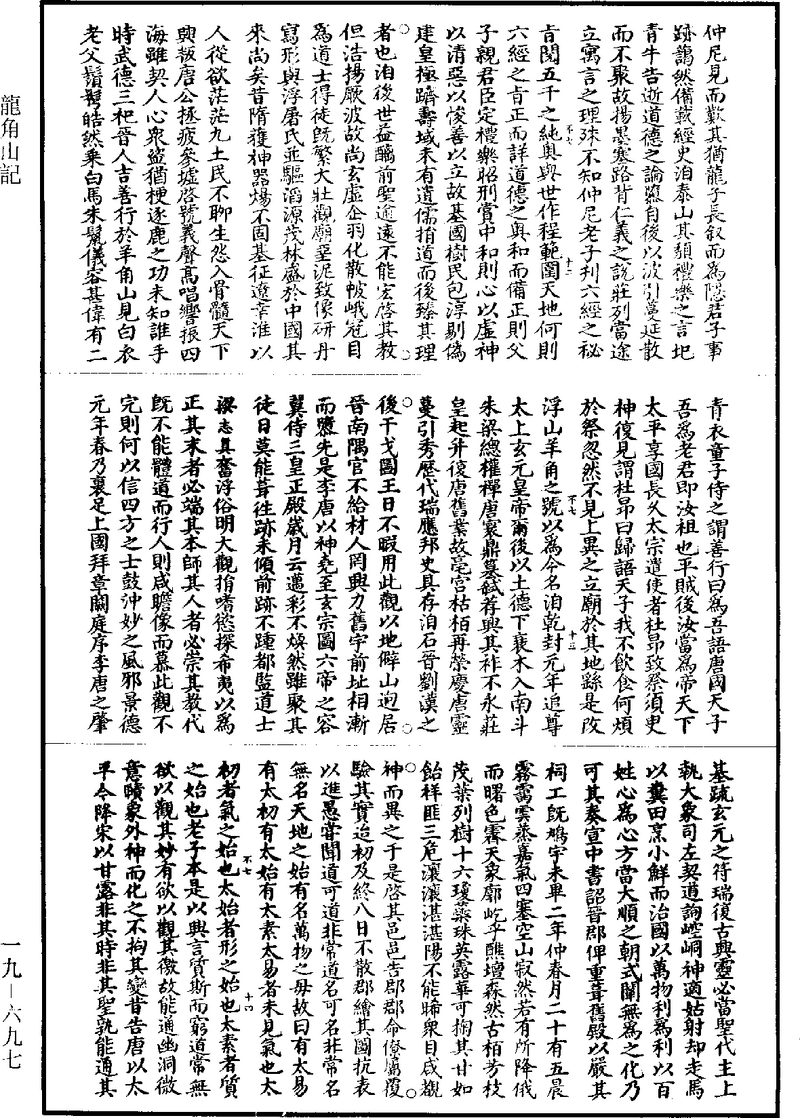 龍角山記
仲尼見而歎其猶龍子長叙而爲隱君子事
跡藹然備載經史洎泰山其頹禮樂之言地
青牛告逝道德之論隳自後以波引蔓延散
而不聚故揚墨塞路背仁義之說莊列當途
立寓言之理殊不知仲尼老子刋六經之秘
不七
旨閱五千之純奧與世作程範圍天地何則
十二
六經之旨正而詳道德之奧和而備正則父
子親君臣定禮樂昭刑賞中和則心以虛神
以清惡以悛善以立故基國樹民包淳剔僞
建皇極躋壽域未有遺儒指道而後臻其理
者也洎後世益醨前聖逾遠不能宏啓其教
但浩揚厥波故尚玄虛企羽化散帔峨冠目
爲道士得徒旣繁大壯觀廟堊泥致像研丹
寫形與浮屠氏並驅滔源茂林盛於中國其
來尚矣昔隋獲神器煬不固基征遼幸淮以
人從欲茫茫九土民不聊生怨入骨髓天下
興叛唐公拯疲參墟啓號義聲高唱響振四
海雖契人心衆盜猶梗逐鹿之功未知誰手
時武德三祀晉人吉善行於羊角山見白衣
老父鬚鬢皓然乘白馬朱鬣儀容甚偉有二
青衣童子侍之謂善行曰爲吾語唐國天子
吾爲老君即汝祖也平賊後汝當爲帝天下
太平享國長久太宗遣使者杜昂致祭須臾
神復見謂杜昂曰歸語天子我不飲食何煩
於祭忽然不見上異之立廟於其地繇是改
浮山羊角之號以爲今名洎乾封元年追尊
不七
十三
太上玄元皇帝爾後以土德下衰木入南斗
朱梁總權禪唐寰鼎墓弒荐興其祚不永莊
皇起并復唐舊業故亳宮枯栢再榮慶唐靈
蔓引秀歷代瑞應邦史具存洎石晉劉漢之
後干戈圖王日不暇用此觀以地僻山逈居
晉南隅官不給材人罔興力舊宇前址相漸
而隳先是李唐以神堯至玄宗圖六帝之容
翼侍三皇正殿歲月云邁彩不煥然雖聚其
徒日莫能葺往跡未傾前跡不踵都監道士
梁志真奮浮俗明大觀指嗜慾探希夷以爲
正其末者必端其本師其人者必崇其教代
旣不能體道而行人則咸瞻像而慕此觀不
完則何以信四方之士鼓沖妙之風邪景德
元年春乃裹足上國拜章闕庭序李唐之肇
基疏玄元之符瑞復古興靈必當聖代主上
執大象司左契遵詢崆峒神適姑射却走馬
以糞田烹小鮮而治國以萬物利爲利以百
姓心爲心方當大順之朝式闡無爲之化乃
可其奏宣中書詔晉郡俾重葺舊殿以嚴其
祠工旣鳩宇未畢二年仲春月二十有五晨
霧靄雲蒸嘉氣四塞空山寂然若有所降俄
而曙色霽天象廓屹乎醮壇森然古栢芳枝
茂葉列樹十六瓊蘂珠英露華可掬其甘如
飴祥匪三危瀼瀼湛湛陽不能晞衆目咸覩
神而異之于是啓其邑邑告郡郡命僚屬覆
驗其實迨初及終八日不散郡繪其圖抗表
以進愚嘗聞道可道非常道名可名非常名
無名天地之始有名萬物之毋故曰有太易
有太初有太始有太素太易者未見氣也太
初者氣之始也太始者形之始也太素者質
不七
十四
之始也老子本是以興言質斯而窮道常無
欲以觀其妙有欲以觀其徼故能通幽洞微
意賾象外神而化之不拘其變昔告唐以太
平今降宋以甘露非其時非其聖孰能通其
一九－六九七